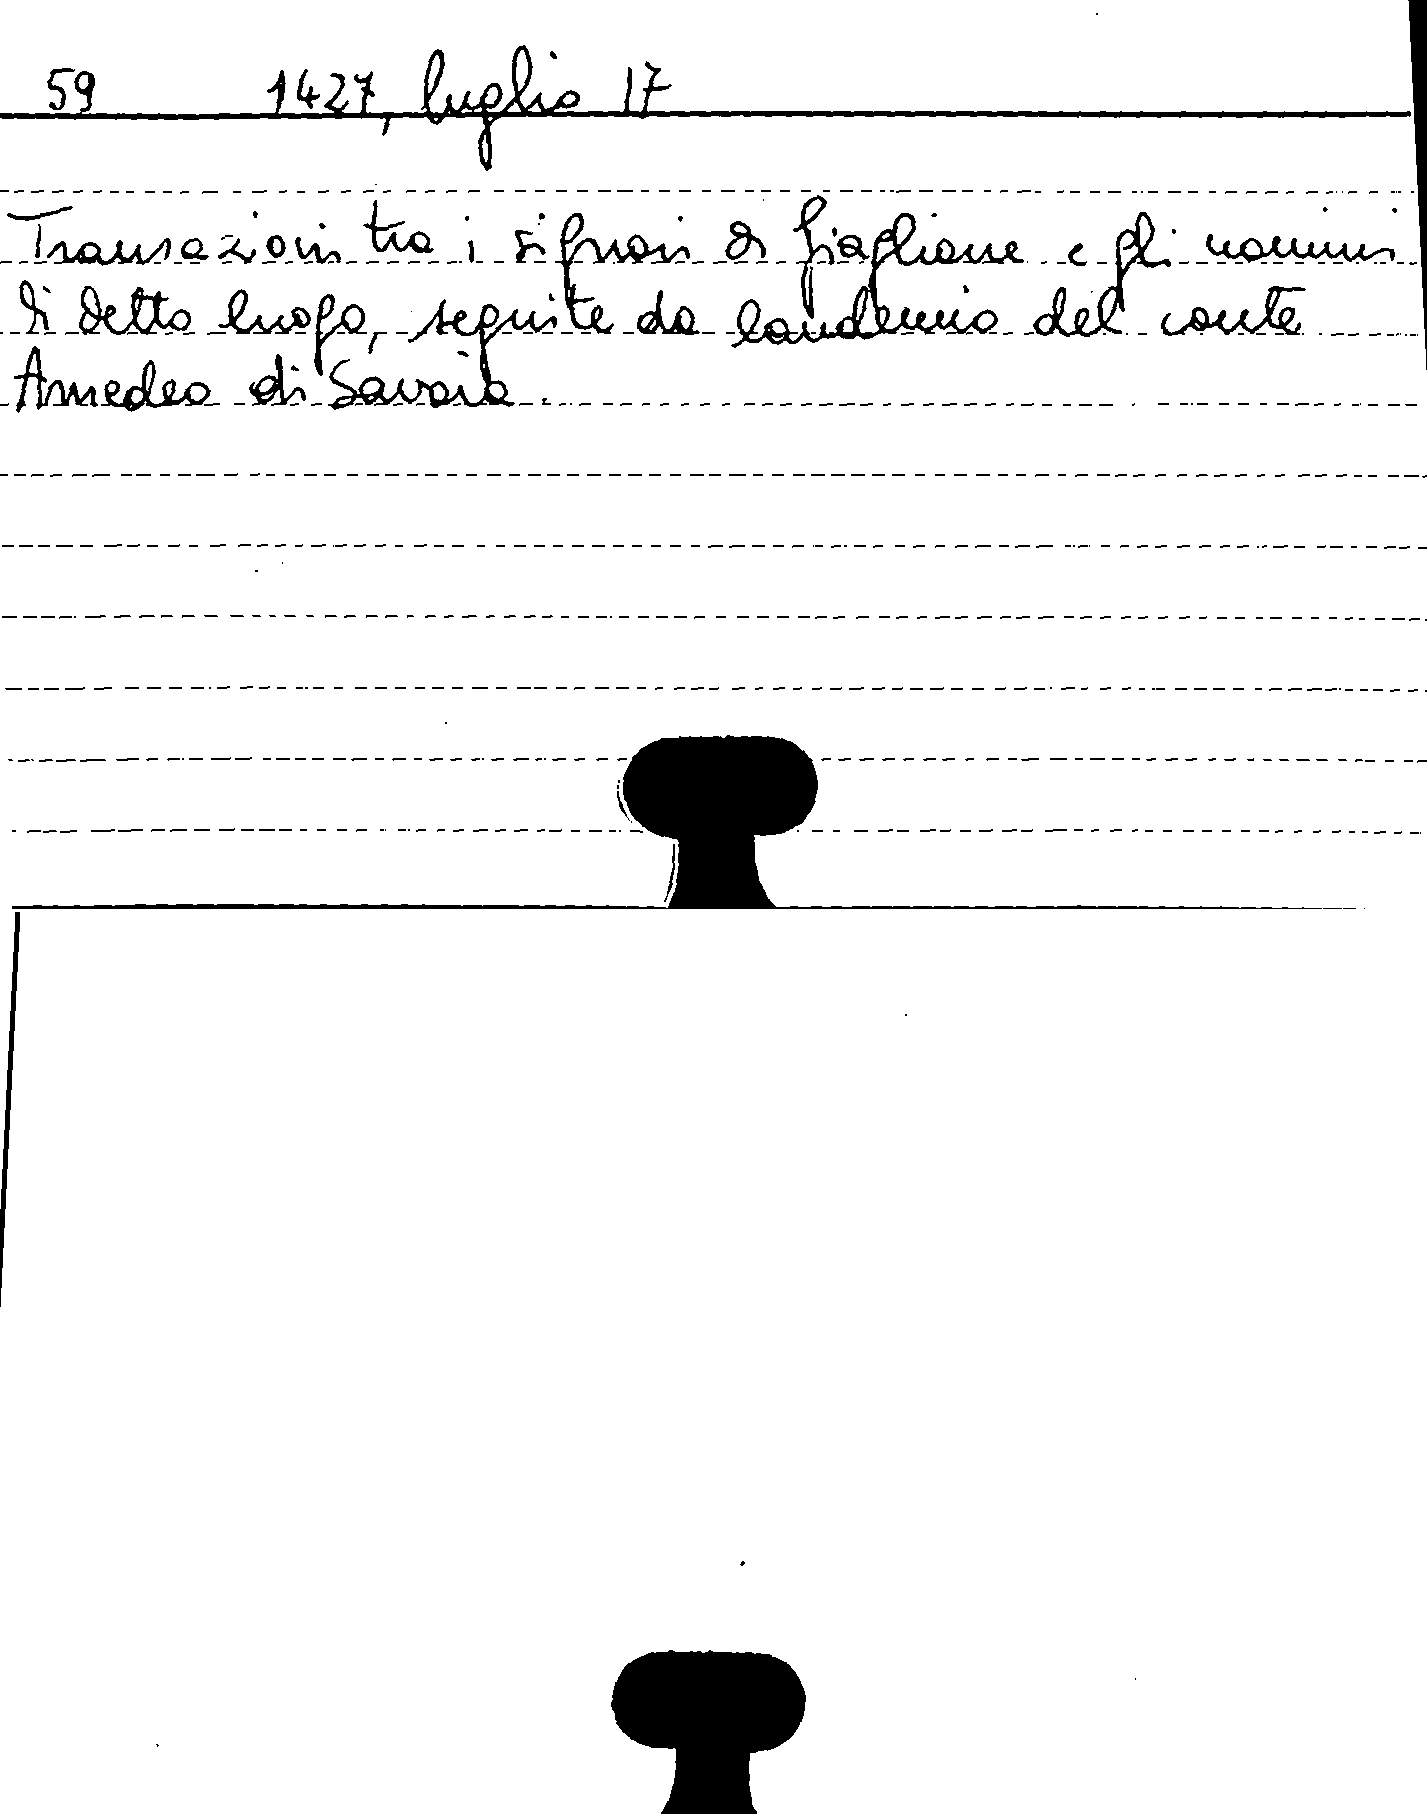 59 1427, luglio 17
Transazioni tra i signori di Giaglione e gli uomini
di detto luogo, seguite da laudemio del conte
Amedeo di Savoia.